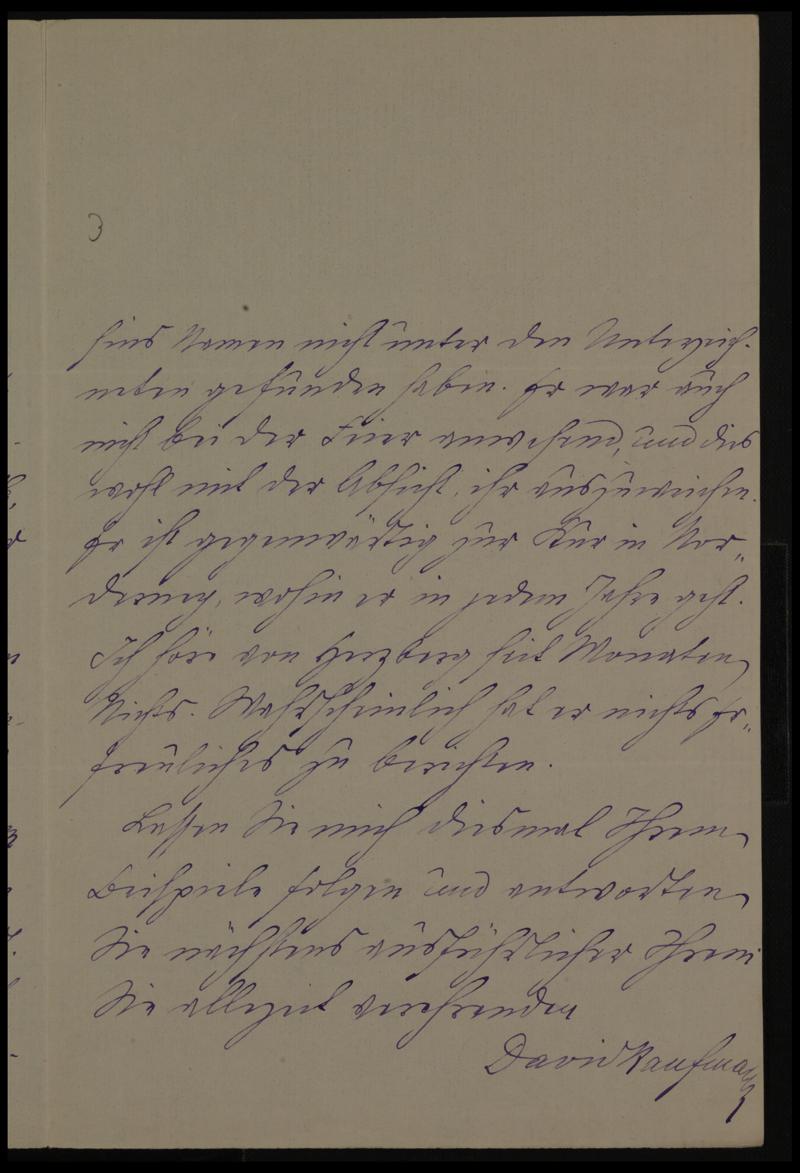 3
seines Namen nicht unter den Unterzeich-
neten gefunden haben. Er war auch
nicht bei der Feier anwesend, und dies
wohl mit der Absicht, ihr auszuweichen.
Er ist gegenwärtig zur Kur in Nor-
derney, wohin er in jedem Jahre geht.
Ich höre von Herzberg seit Monaten
Nichts. Wahrscheinlich hat er nichts Er-
freuliches zu berichten.
Lassen Sie mich diesmal Ihrem
Beispiele folgen und antworten
Sie nächstens ausführlicher Ihrem
Sie allezeit verehrenden
David Kaufmann